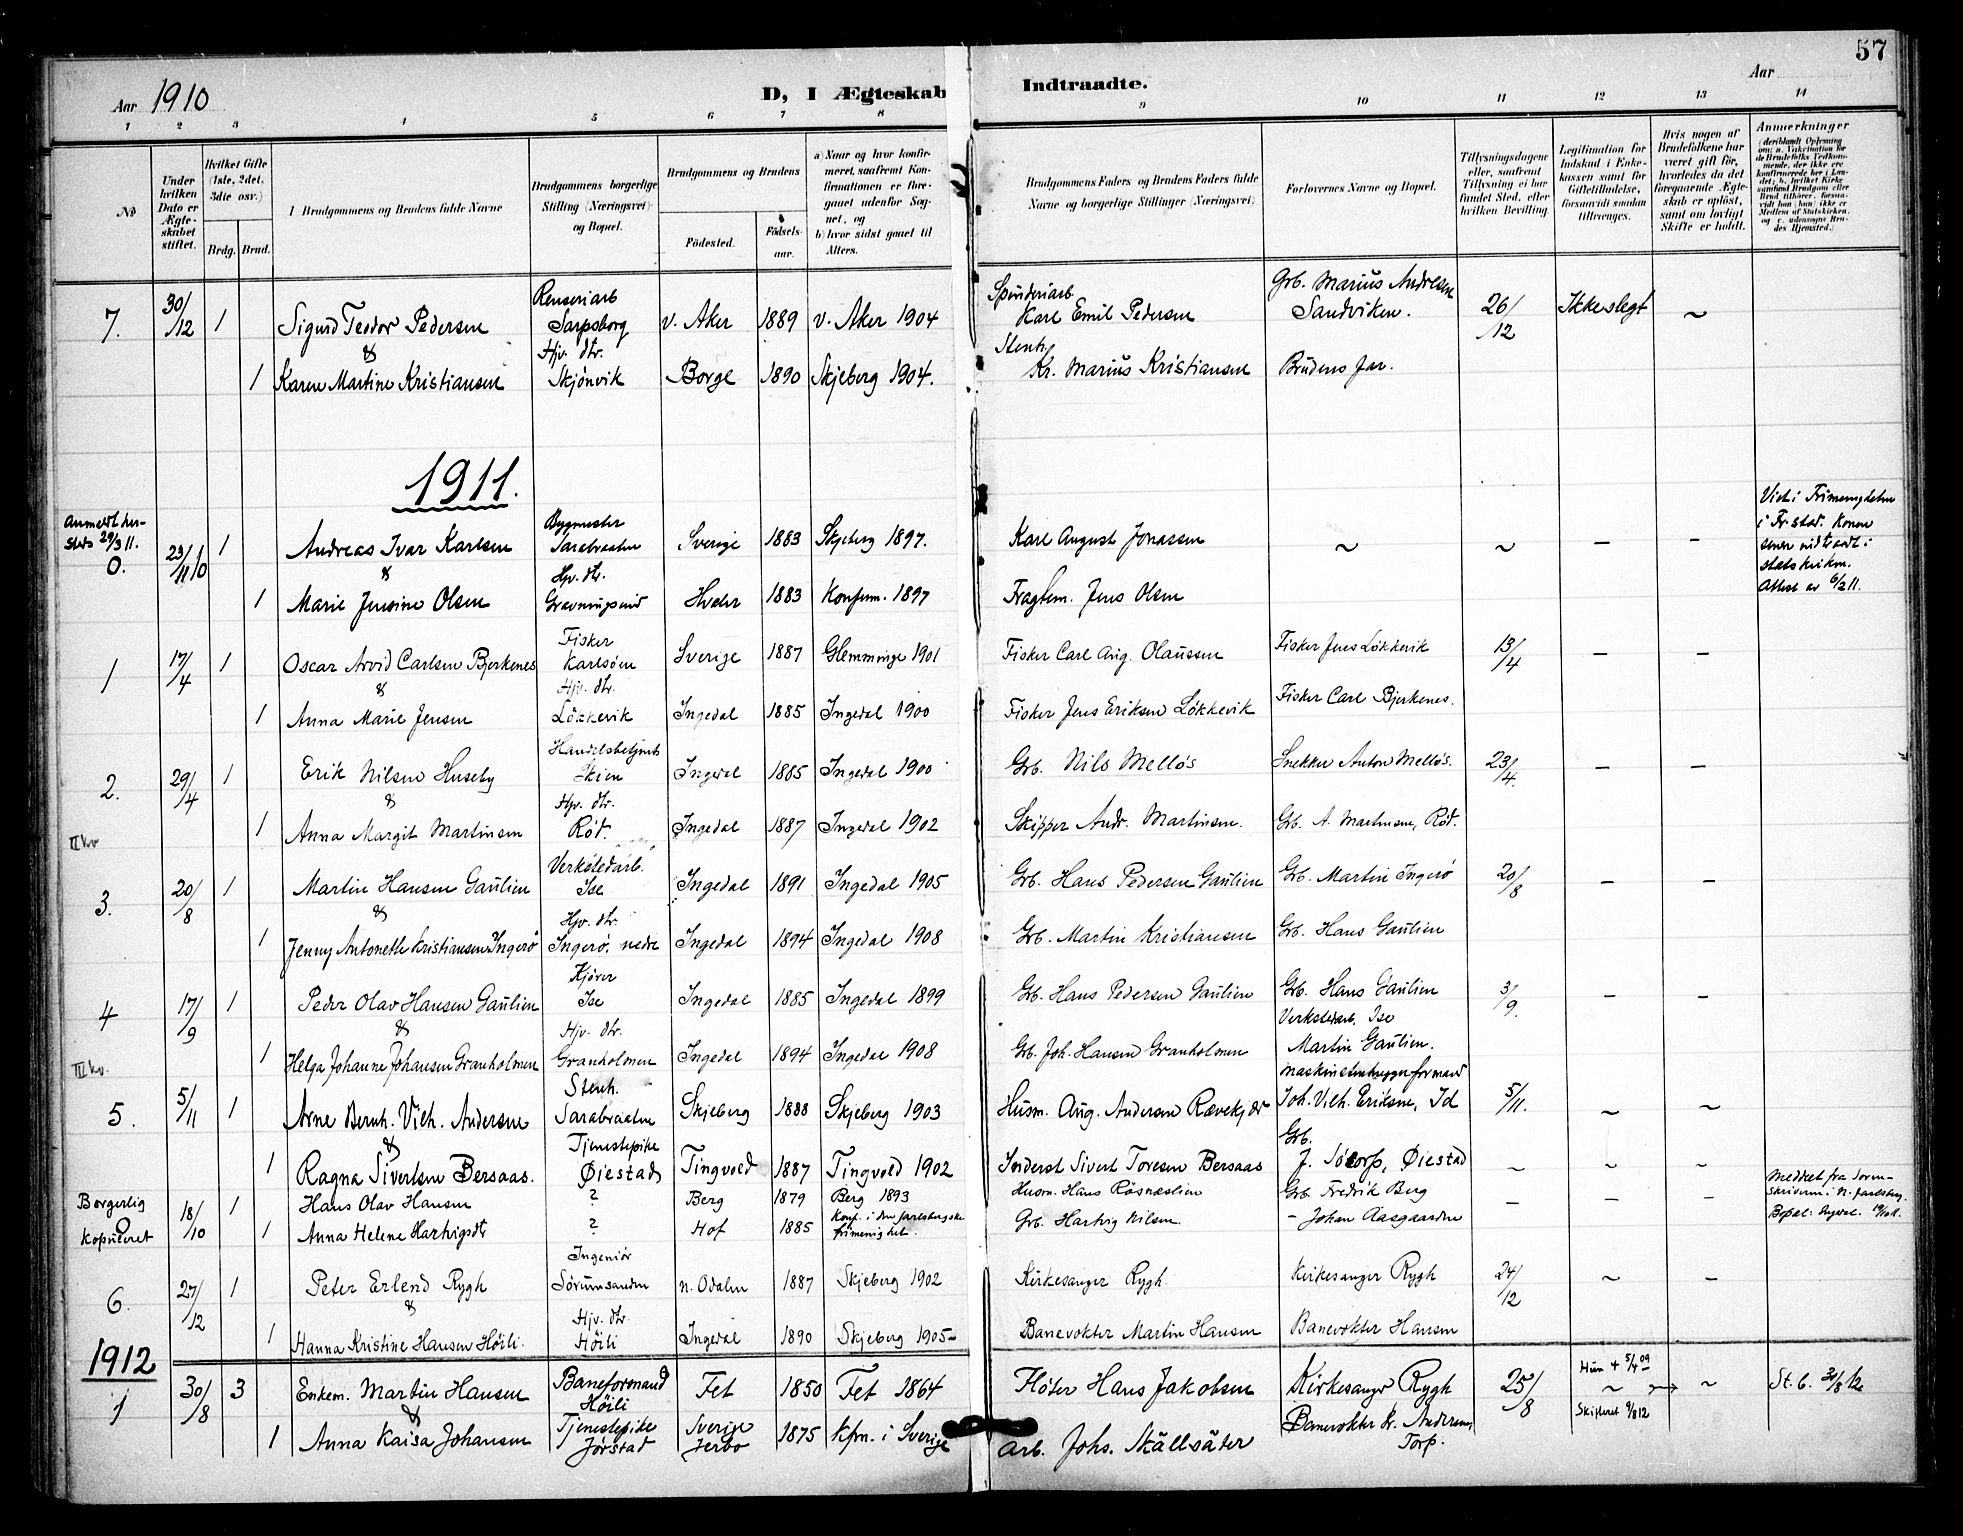 57
Aar 1910
D, I Ægteskab Indtraadte.
Aar
1 2 3 4 5 6 7 8 9 10 11 12 13 14
№
Under hvilken Dato er Ægteskabet stiftet.
Hvilket Gifte (1ste, 2det, 3die osv.)
Brdg. Brud.
Brudgommens og Brudens fulde Navne
Brudgommens borgerlige Stilling (Næringsvei) og Bopæl.
Brudgommens og Brudens
Födested. Födsels-aar.
a) Naar og hvor konfirmeret, saafremt Konfirmationen er foregaaet udenfor Sognet, og
b) hvor sidst gaaet til Alters.
Brudgommens Faders og Brudens Faders fulde Navne og borgerlige Stillinger (Næringsvei)
Forlovernes Navne og Bopæl.
Tillysningsdagene eller, saafremt Tillysning ei har fundet Sted, efter hvilken Bevilling.
Legitimation for Indskud i Enkekassen samt for Giftetilladelse, forsaavidt saadan tiltrænges.
Hvis nogen af Brudefolkene har været gift før, hvorledes da det foregaaende Ægteskab er opløst, samt om lovligt Skifte er holdt.
Anmerkninger
7. 30/12 1 Sigurd Teodor Pedersen Renseriarb Sarpsborg v. Aker 1889 v. Aker 1904 Spinderiarb Karl Emil Pedersen Grb. Marius Andresen Sandviken. 26/12 Ikke slegt ~
&
1 Karen Martine Kristiansen Hjv. dtr. Skjønvik Borge 1890 Skjeberg 1904. Stenh. Kr. Marius Kristiansen Brudens far.
1911.
Anmeldt her-
steds 29/3 11.
0. 23/11 10 1 Andreas Ivar Karlsen Bygmester Sarabraaten Sverige 1883 Skjeberg 1897. Karl August Jonassen ~ ~ – –
Viet i Frimenigheten
i Fr.stad. Konen
senere
statskirken.
Attest av 6/2 11.
&
1 Marie Jensine Olsen Hjv. dtr. Hvaler 1883 Konfirm. 1897 Fragtem. Jens Olsen
1 17/4 1 Oscar Arvid Carlsen Bjerkenes Fisker Karlsøen Sverige 1887 Glemminge 1901 Fisker Carl Aug. Olaussen Fisker Jens Løkkevik 13/4 – –
&
1 Anna Marie Jensen Hjv. dtr. Løkkevik Ingedal 1885 Ingedal 1900 Fisker Jens Eriksen Løkkevik Fisker Carl Bjerkenes.
2. 29/4 1 Erik Nilsen Huseby Handelsbetjent Skien Ingedal 1885 Ingedal 1900 Grb. Nils Melløs Snekker Anton Melløs. 23/4. – –
&
1 Anna Margit Martinsen Hjv. dtr. Rød. Ingedal 1887 Ingedal 1902 Skipper Andr. Martinsen. Grb. A. Martinsen, Rød.
II kv
3. 20/8 1 Martin Hansen Gaulien Verkstedarb. Ise Ingedal 1891 Ingedal 1905 Grb. Hans Pedersen Gaulien Grb. Martin Ingerø 20/8 – –
&
1 Jenny Antonette Kristiansen Ingerø Hjv. dtr. Ingerø, nedre Ingedal 1894 Ingedal 1908 Grb. Martin Kristiansen Grb. Hans Gaulien
4 17/9 1 Peder Olav Hansen Gaulien Kjører Ise Ingedal 1885 Ingedal 1899 Grb. Hans Pedersen Gaulien Grb. Hans Gaulien 3/9. – –
&
1 Helga Johanne Johansen Granholmen Hjv. dtr. Granholmen Ingedal 1894 Ingedal 1908 Grb. Joh. Hansen Granholmen Verkstedarb. Ise Martin Gaulien.
III kv.
5. 5/11 1 Arne Bernh. Vilh. Andersen Stenh. Sarabraaten Skjeberg 1888 Skjeberg 1903 Husm. Aug. Andersen Rævekjær Joh. Vilh. Eriksen, Id 5/11. ~ ~
&
1 Ragna Sivertsen Bersaas. Tjenestepike Øiestad Tingvold 1887 Tingvold 1902 Inderst Sivert Toresen Bersaas Grb. J. Solorp, Øiestad – ~ ~
Borgerlig
Kopuleret
0 18/10 1 Hans Olav Hansen ? Berg 1879 Berg 1893 Husm. Hans Røsnæslien Grb. Fredrik Berg – – –
Meddelt fra Soren-
skriveren i N. Jarlsberg.
1 Anna Helene Hartvigsdtr ? Hof 1885 Konf. i den jarlsbergske frimenighet. Grb. Hartvig Nilsen – Johan Aasgaarden
6. 27/12 1 Peter Erlend Rygh Ingeniør Sørumsanden n. Odalen 1887 Skjeberg 1902 Kirkesanger Rygh. Kirkesanger Rygh 24/12 ~ –
&
1 Hanna Kristine Hansen Høili. Hjv. dtr. Høili Ingedal 1890 Skjeberg 1905– Banevokter Martin Hansen Banevokter Hansen
1912
1 30/8 3 Enkem. Martin Hansen Baneformand Høili Fet 1850 Fet 1864 Fløter Hans Jakobsen Kirkesanger Rygh 25/8 Hun + 5/4 09 ~ ~ St. b. 30/8 12
Skifteret 9/8 12
&
1 Anna Kaisa Johansen Tjenestepike Jørstad Sverige Jerbo 1875 Kfm. i Sverige Arb. Johs. Skällsäter Banevokter Kr. Andersen, Torp.